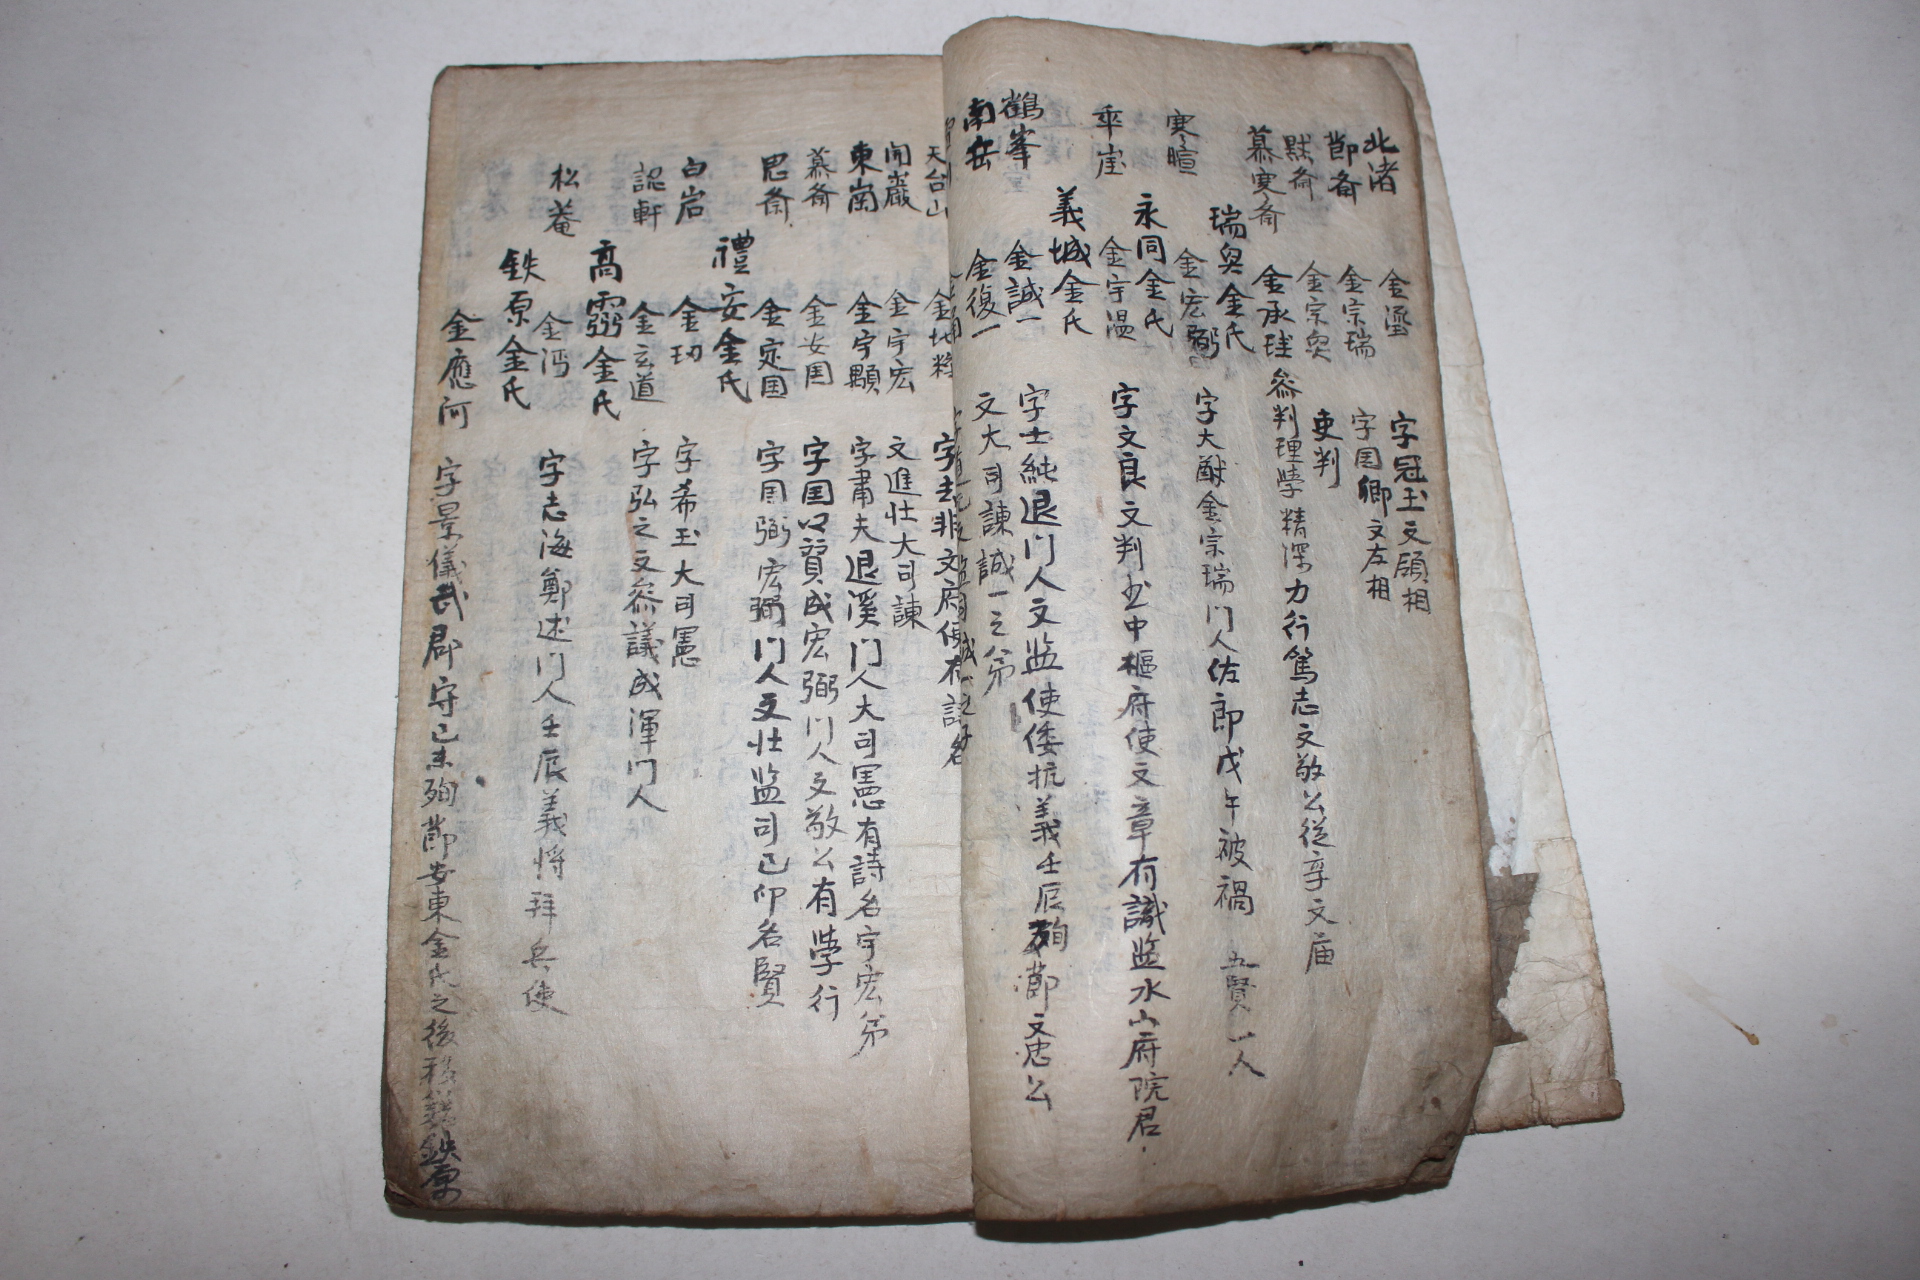 北渚 金瑬 字冠玉文領相
節齋 金宗瑞 字国卿文左相
默齋 金宗奭 吏判
慕寒齋 金承球 參判理學精深力行篤志文敬公從享文庙
瑞興金氏
寒暄 金宏弼 字大猷金宗瑞门人佐郎戊午被禍 五賢一人
永同金氏
乖崖 金守温 字文良文判書中樞府使文章有識监水山府院君
義城金氏
鶴峯 金誠一 字士純退门人文监使倭抗義壬辰殉節文忠公
南岳 金復一 文大司諫誠一之弟
天台山
開巖 金宇宏 文進壮大司諫
東崗 金宇顒 字肅夫退溪门人大司憲有詩名宇宏弟
慕齋 金安国 字国卿賀成宏弼门人文敬公有學行
思齋 金定国 字国弼宏弼门人文壮监司己卯名賢
禮安金氏
白岩 金玏 字希玉大司憲
認軒 金玄道 字弘之文參議成渾门人
高靈金氏
松菴 金沔 字志海鄭逑门人壬辰義将拜兵使
鉄原金氏
金應河 字景儀武郡守己未殉節安東金氏之後移籍鉄原